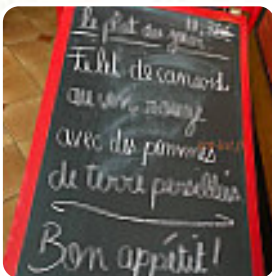 le plat du jour
Filet de canard
au vin rouge
avec des pommes
de terre persillées
Bon appétit!